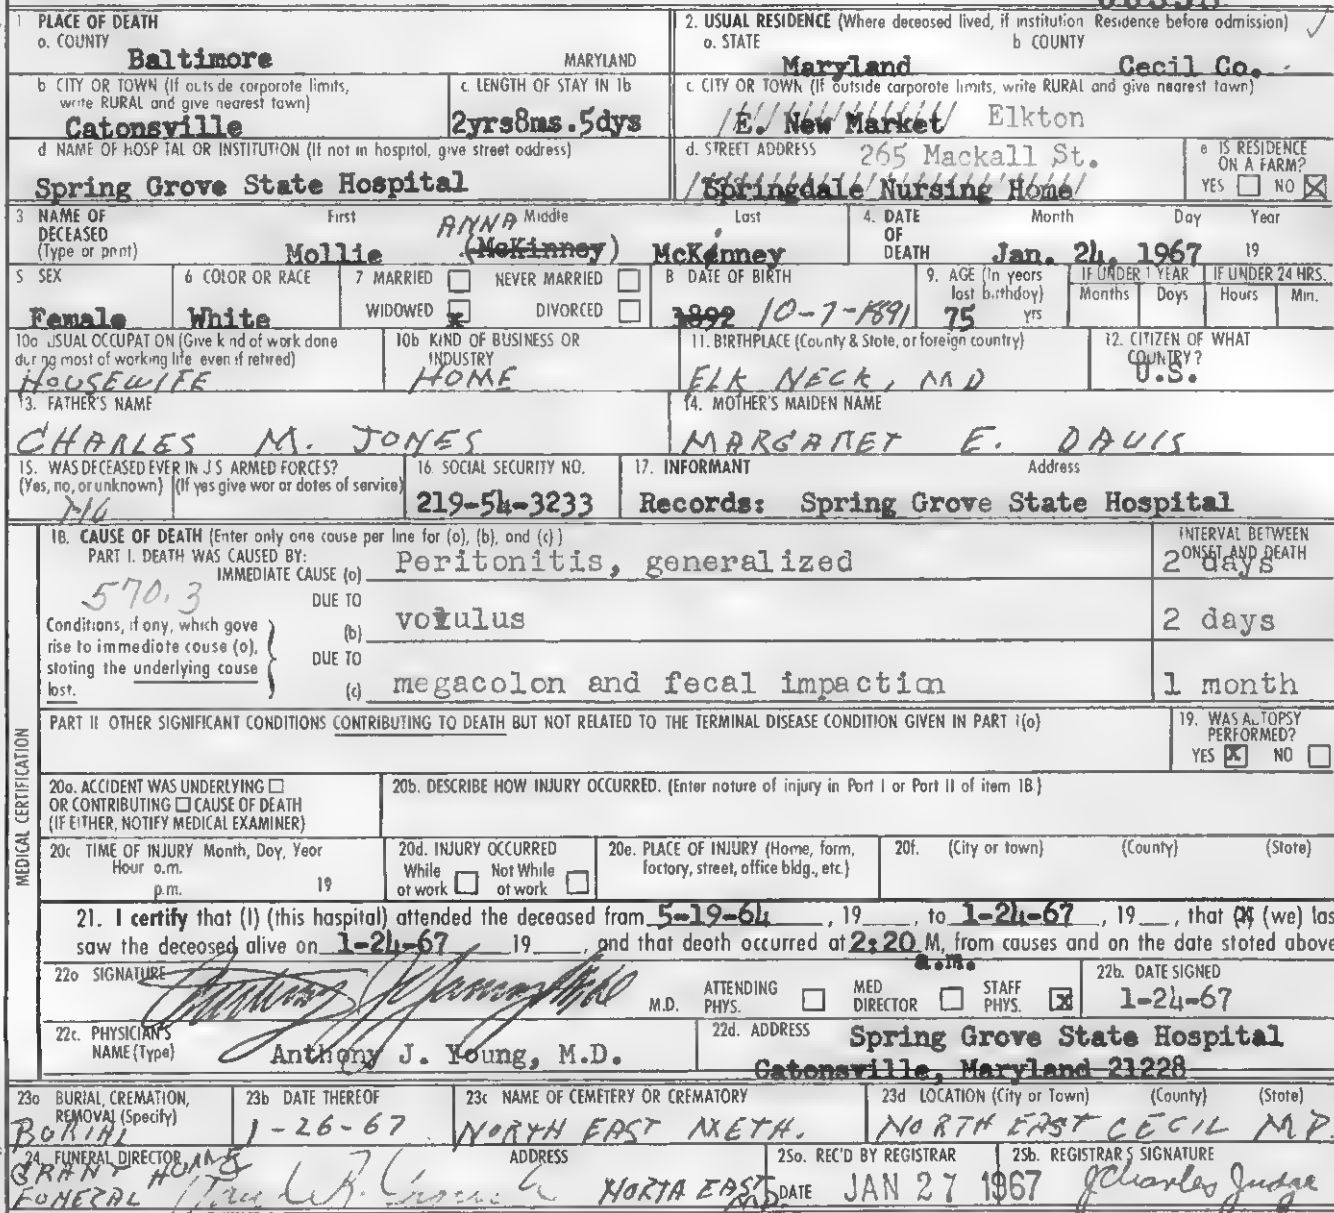 1 PLACE OF DEATH
a. COUNTY
Baltimore MARYLAND
2. USUAL RESIDENCE (Where deceased lived, if institution Residence before admission)
a. STATE b COUNTY
Maryland Cecil Co.
b CITY OR TOWN (If outside corporate limits, write RURAL and give nearest town)
Catonsville
c. LENGTH OF STAY IN 1b
2yrs8ms.5dys
c CITY OR TOWN (If outside corporate limits, write RURAL and give nearest town)
E. New Market Elkton
d NAME OF HOSPITAL OR INSTITUTION (If not in hospital, give street address)
Spring Grove State Hospital
d. STREET ADDRESS 265 Mackall St.
Springdale Nursing Home
e IS RESIDENCE ON A FARM?
YES NO X
3 NAME OF DECEASED (Type or print)
First Middle Last
ANNA
Mollie (McKinney) McKinney
4. DATE OF DEATH
Month Day Year
Jan. 24, 1967 19
5 SEX
Female
6 COLOR OR RACE
White
7 MARRIED NEVER MARRIED
WIDOWED x DIVORCED
8 DATE OF BIRTH
1892 10-7-1891
9. AGE (In years last birthday)
75 yrs
IF UNDER 1 YEAR
Months Days
IF UNDER 24 HRS.
Hours Min.
10a USUAL OCCUPATION (Give kind of work done during most of working life even if retired)
HOUSEWIFE
10b KIND OF BUSINESS OR INDUSTRY
HOME
11. BIRTHPLACE (County & State, or foreign country)
ELK NECK, MD
12. CITIZEN OF WHAT COUNTRY?
U.S.
13. FATHER'S NAME
CHARLES M. JONES
14. MOTHER'S MAIDEN NAME
MARGARET E. DAVIS
15. WAS DECEASED EVER IN U S ARMED FORCES?
(Yes, no, or unknown) (If yes give war or dates of service)
16. SOCIAL SECURITY NO.
219-54-3233
17. INFORMANT Address
Records: Spring Grove State Hospital
MEDICAL CERTIFICATION
18. CAUSE OF DEATH (Enter only one cause per line for (a), (b), and (c))
PART I. DEATH WAS CAUSED BY:
IMMEDIATE CAUSE (a) Peritonitis, generalized
INTERVAL BETWEEN ONSET AND DEATH
2 days
570.3
Conditions, if any, which gave rise to immediate cause (a), stating the underlying cause last.
DUE TO
(b) volulus 2 days
DUE TO
(c) megacolon and fecal impaction 1 month
PART II OTHER SIGNIFICANT CONDITIONS CONTRIBUTING TO DEATH BUT NOT RELATED TO THE TERMINAL DISEASE CONDITION GIVEN IN PART I(a)
19. WAS AUTOPSY PERFORMED?
YES X NO
20a. ACCIDENT WAS UNDERLYING
OR CONTRIBUTING CAUSE OF DEATH
(IF EITHER, NOTIFY MEDICAL EXAMINER)
20b. DESCRIBE HOW INJURY OCCURRED. (Enter nature of injury in Part I or Part II of item 18.)
20c TIME OF INJURY Month, Day, Year
Hour a.m.
p.m. 19
20d. INJURY OCCURRED
While at work Not While at work
20e. PLACE OF INJURY (Home, farm, factory, street, office bldg., etc.)
20f. (City or town) (County) (State)
21. I certify that (I) (this hospital) attended the deceased from 5-19-64, 19__, to 1-24-67, 19__, that (X) (we) las
saw the deceased alive on 1-24-67 19__, and that death occurred at 2:20 M, from causes and on the date stated above
a.m.
22a SIGNATURE
M.D. ATTENDING PHYS. MED DIRECTOR STAFF PHYS. X
22b. DATE SIGNED
1-24-67
22c. PHYSICIAN'S NAME (Type)
Anthony J. Young, M.D.
22d. ADDRESS Spring Grove State Hospital
Catonsville, Maryland 21228
23a BURIAL, CREMATION, REMOVAL (Specify)
BURIAL
23b DATE THEREOF
1-26-67
23c NAME OF CEMETERY OR CREMATORY
NORTH EAST METH.
23d LOCATION (City or Town) (County) (State)
NORTH EAST CECIL MD.
24. FUNERAL DIRECTOR ADDRESS
GRANT HOME
FUNERAL NORTH EAST MD.
25a. REC'D BY REGISTRAR
DATE JAN 27 1967
25b. REGISTRAR'S SIGNATURE
J Charles Judge